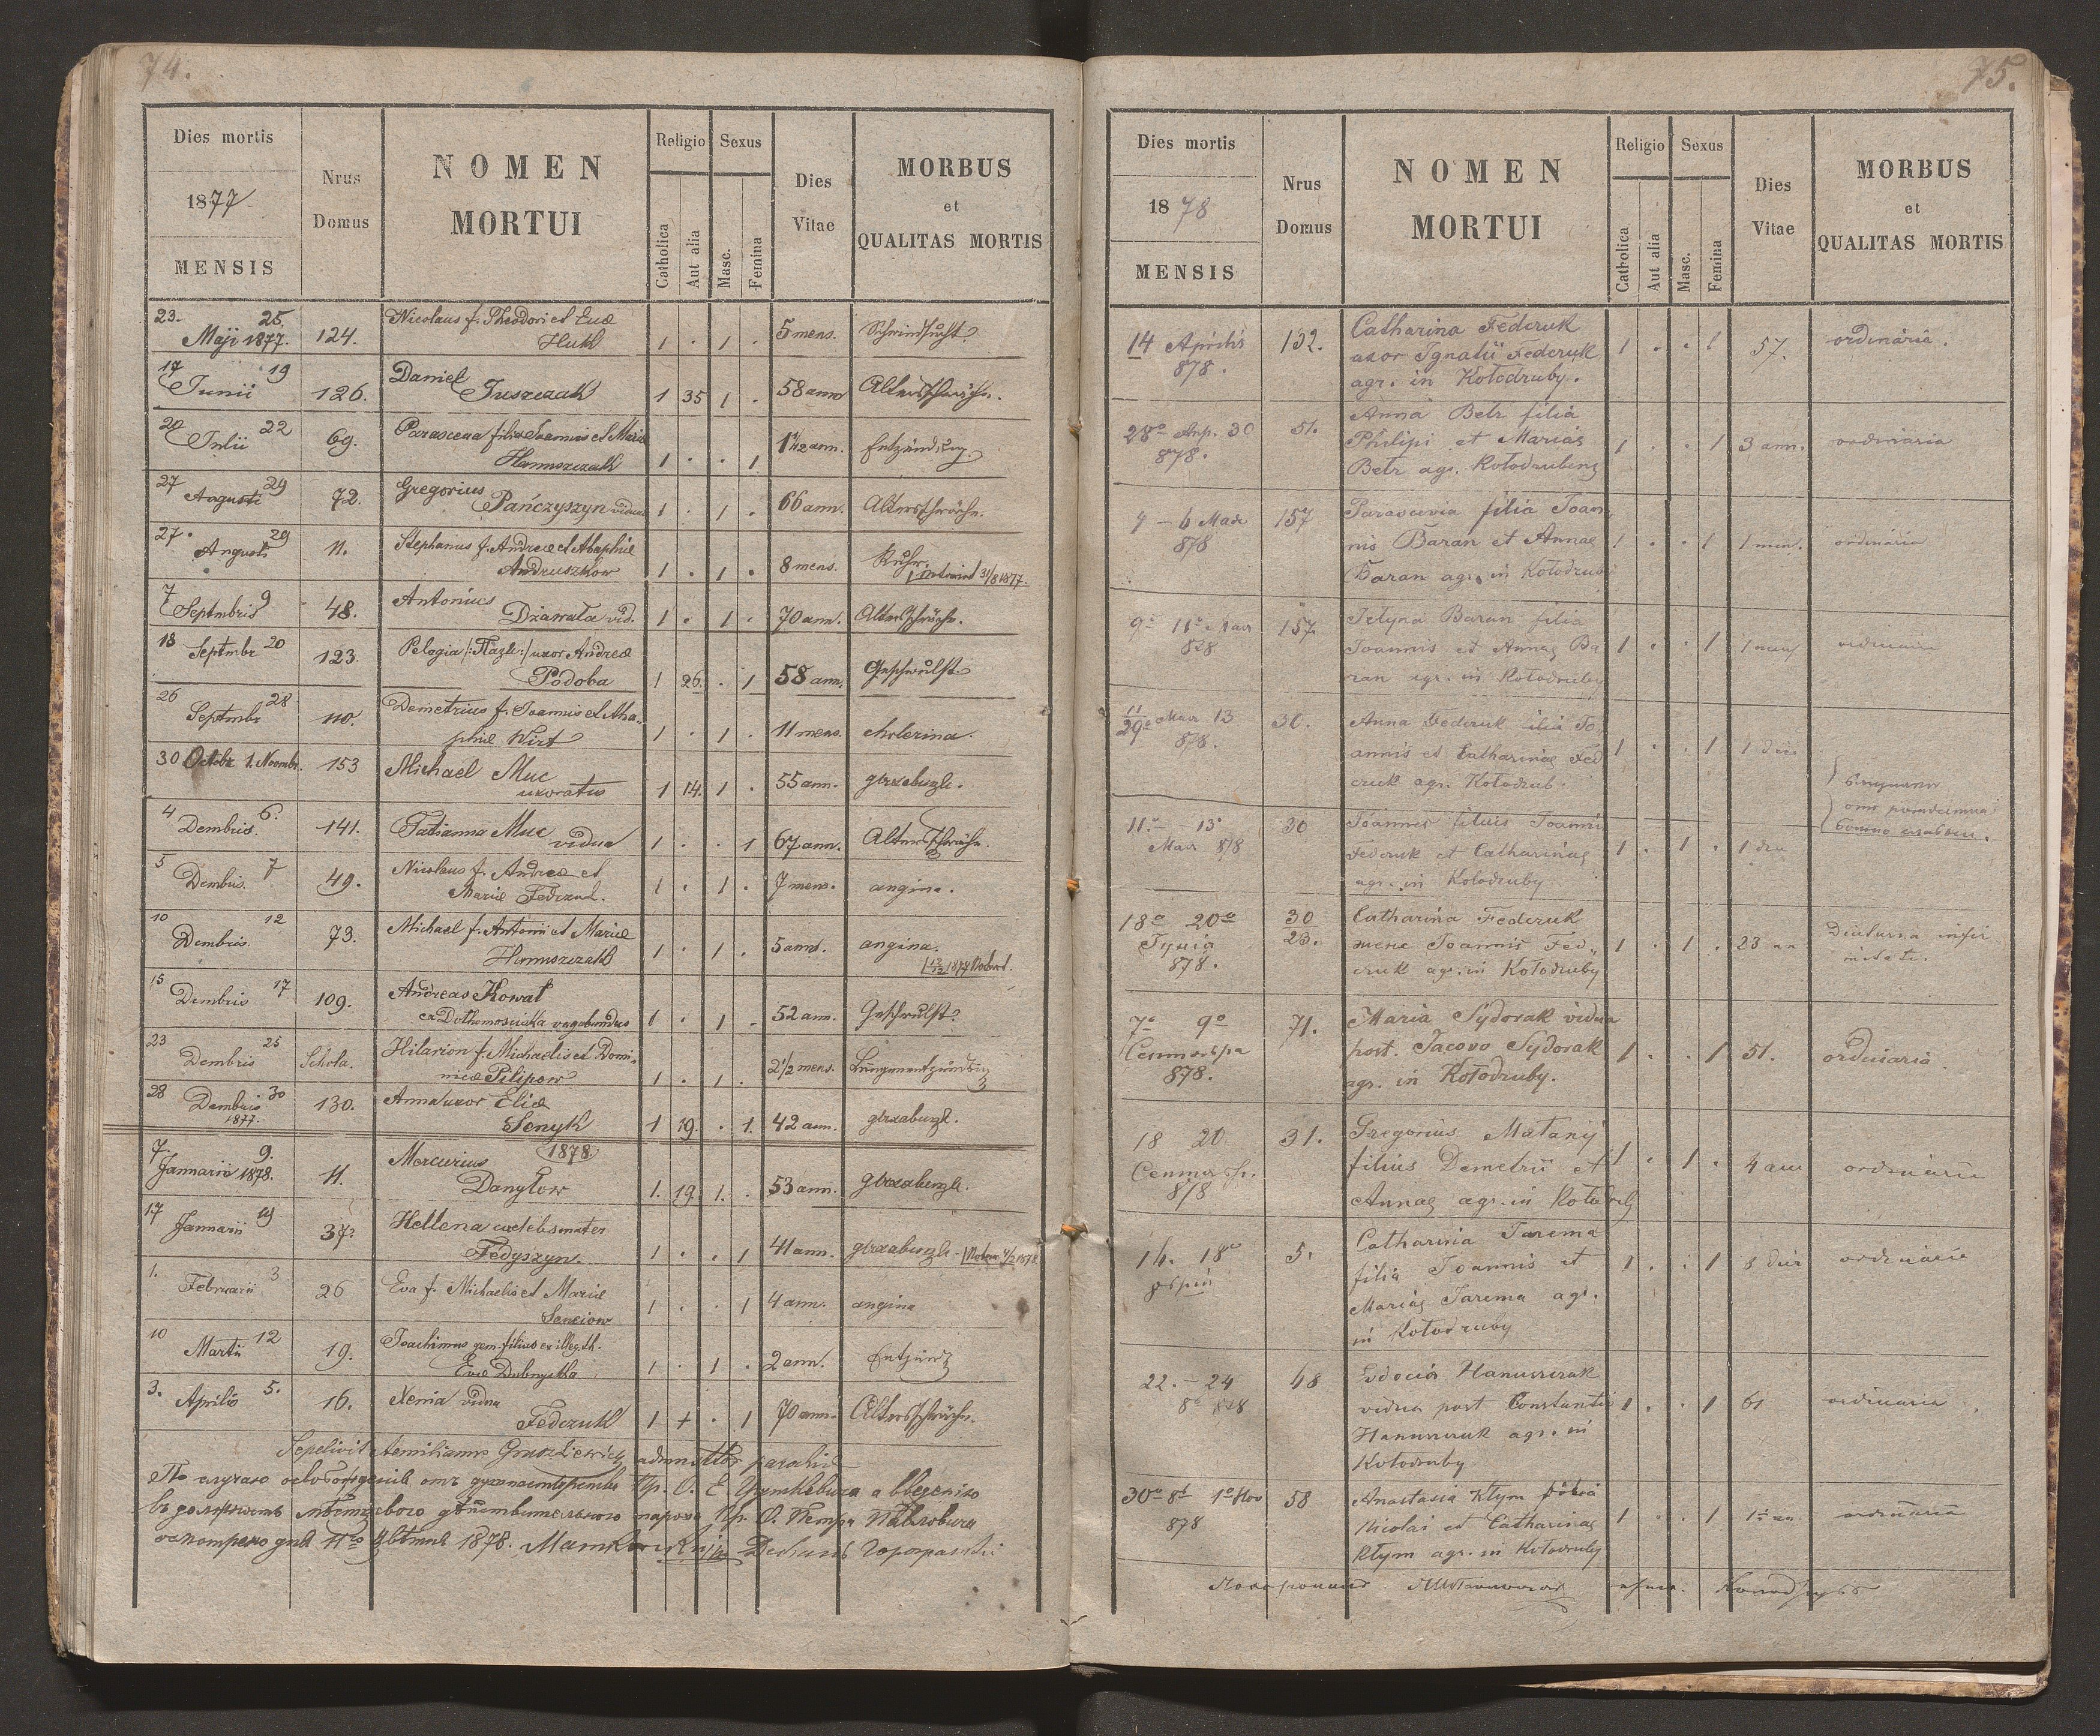 74.
Dies mortis
1877
MENSIS
Nrus
Domus
NOMEN
MORTUI
Religio
Catholica
Aut alia
Sexus
Masc.
Femina
Dies
Vitae
MORBUS
et
QUALITAS MORTIS
23. 25.
Maji 1877. 124. Nicolaus f. Theodori et Evae
Huk 1 . 1 . 5 mens. Schwindsucht
17 19
Junii 126. Daniel
Juszczak 1 35 1 . 58 ann Altersschwäche.
20 22
Julii 69. Parascena filia Joannis et Mariae
Hanuszczak 1 . . 1 1 1/12 ann. Entzündung
27 29
Augusti 72. Gregorius
Pańczyszyn viduus 1 . 1 . 66 ann. Altersschwäche.
27. 29
Augusti 11. Stephanus f. Andreae et Ahaphiae
Andruszków 1 . 1 . 8 mens. Ruhr.
31/8 1877.
7 9
Septmbris 48. Antonius
Dziawała vid. 1 . 1 . 70 ann. Altersschwäche.
18 20
Septmbr 123. Pelagia uxor Andreae
Podoba 1 26. . 1 58 ann. Geschwulst
26 28
Septmbr 110. Demetrius f. Joannis et Aha-
phiae Wirt 1 . 1 . 11 mens. cholerina.
30 Octobr 1. Novmbr. 153 Michael Muc
uxoratus 1 14. 1 . 55 ann.
4 6.
Dembris. 141. Tatianna Muc
vidua 1 . . 1 67 ann. Altersschwäche.
5 7
Dembris. 49. Nicolaus f. Andreae et
Mariae Fedczuk. 1 . 1 . 7 mens. angina.
10 12
Dembris. 73. Michael f. Antonii et Mariae
Hanuszczak 1 . 1 . 5 ann. angina.
15 17
Dembris 109. Andreas Kowal
vagabundus 1 . 1 . 52 ann. Geschwulst
23 25
Dembris Schola. Hilarion f. Michaelis et Domi-
nicae Pilipow 1 . 1 . 2 1/2 mens. Lungenentzündung
28 30
Dembris
1877. 130. Anna uxor Eliae
Senyk 1 19. . 1. 42 ann.
1878
7. 9.
Januarii 1878. 11. Mercurius
Danyłow 1. 19. 1. . 53 ann.
17 19
Januarii 37. Hellena caelebs mater
Fedyszyn. 1 . . 1 41 ann.
1. 3
Februarii 26 Eva f. Michaelis et Mariae
Senciow 1 . . 1 4 ann. angina
10 12
Martii 19. Joachimus gem. filius ex illeg. th.
Evae Dubnycka 1 . 1 . 2 ann. Entzündg
3. 5.
Aprilis 16. Xenia vidua
Fedczuk 1 + . 1 70 ann. Altersschwäche.
Sepelivit Aemilianus administtor parochiae
По случаю
въ должность
1878. Деканъ
75.
Dies mortis
1878
MENSIS
Nrus
Domus
NOMEN
MORTUI
Religio
Catholica
Aut alia
Sexus
Masc.
Femina
Dies
Vitae
MORBUS
et
QUALITAS MORTIS
14 Aprilis
878. 132. Catharina Federuk
uxor Ignatii Federuk
agr. in Kołodruby. 1 . . 1 57. ordinaria.
28o Anp. 30
878. 51. Anna Betr filia
Philipi et Mariae
Betr agr. Kołodrubens 1 . . 1 3 ann. ordinaria
4 – 6 Maje
878 157 Parascevia filia Joan
nis Baran et Annae
Baran agr. in Kołodruby 1 . . 1 1 men. ordinaria
9o 11o
878 157. Baran filia
Joannis et Annae Ba
ran agr. in Kołodruby 1 . . 1 1 mens ordinaria
11
29o 13
878. 30. Anna Federuk filia Jo
annis et Catharinae Fed
eruk agr. Kołodrub. 1 . . 1 1 diei
11. – 13
878 30 Joannes filius Joannis
Federuk et Catharinae
agr. in Kołodruby 1 . 1 . 1 die
18o 20o
Іунія
878. 30
23. Catharina Federuk
жена Joannis Fed„
eruk agr. in Kołodruby 1 . 1 . 23 an Diuturna infir
mitate.
7o 9o
Септеврія
878. 71. Maria Sydorak vidua
post. Jacovo Sydorak
agr. in Kołodruby. 1 . . 1 51. ordinaria
18 20
878 31. Gregorius Matanij
filius Demetrii et
Annae agr. in Kołodrub 1 . 1 . 4 ann ordinaria
16. 18o 5. Catharina Jarema
filia Joannis et
Mariae Jarema agr.
in Kołodruby 1 . . 1 8 dies ordinaria
22. – 24
8o 878 68 Evdocia Hanuszczak
vidua post Constanti
Hanuszczak agr. in
Kołodruby 1 . . 1 61 ordinaria
30o 8b 1o Nov
878 58 Anastasia Kłym
Nicolai et Catharinae
Kłym agr. in Kołodruby 1 . . 1 ordinaria